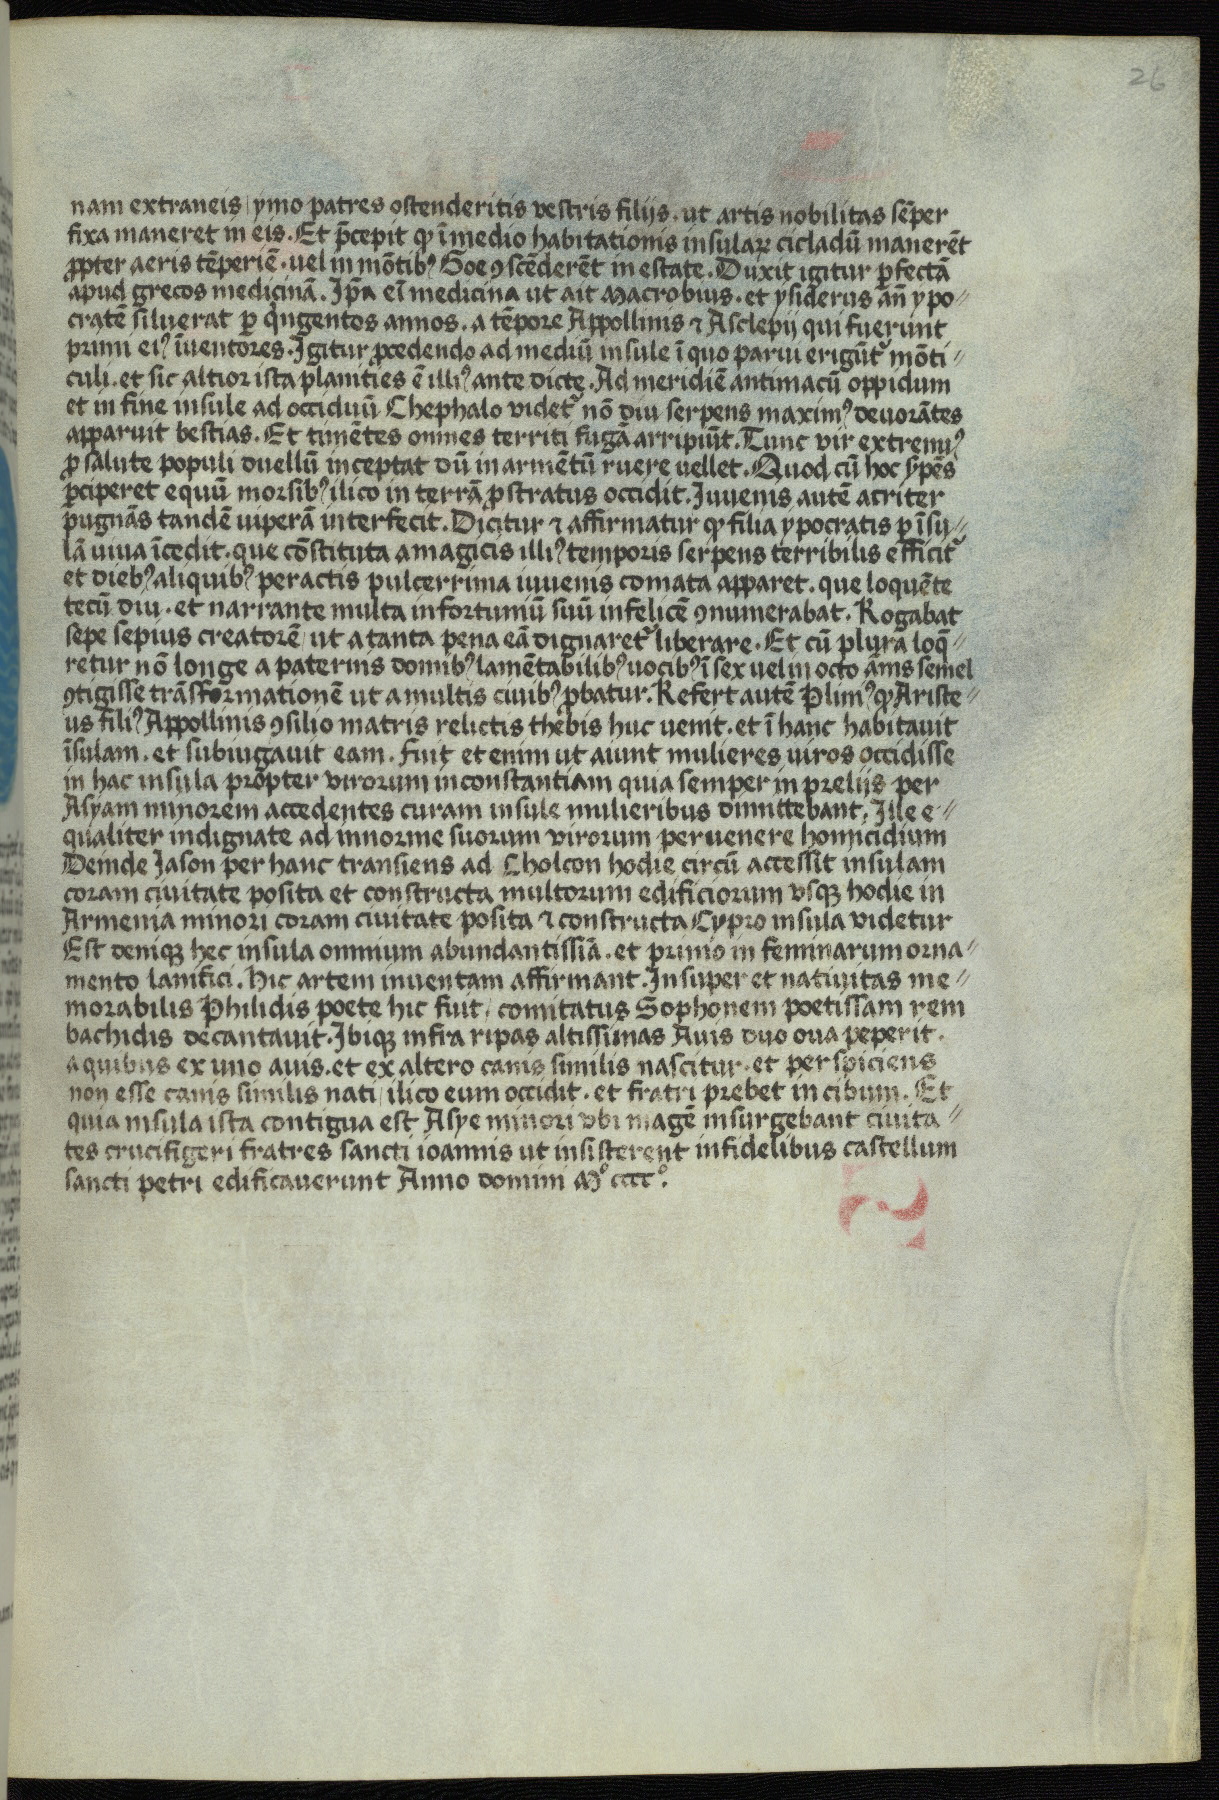 26
nam extraneis ymo patres ostenderitis vestris filijs . ut artis nobilitas sēper
fixa maneret in eis . Et p̄cepit qꝫ ī medio habitationis insulaꝝ cicladū manerēt
ꝓpter aeris tēperiē . vel in mōtibꝰ Soe ꝯscēderēt in estate . Duxit igitur ꝑfectā
apud grecos medicinā . Ip̄a eī medicina ut ait Macrobius . et ysiderus an̄ ypo⸗
cratē siluerat ꝑ qͥngentos annos . a tēpore Appollinis ⁊ Asclepij qui fuerunt
primi eiꝰ īventores . Igitur ꝓcedendo ad mediū insule ī quo parui erigūtᷣ mōti⸗
culi . et sic altior ista planities ē illiꝰ ante dicte . Ad meridiē antimacū oppidum
et in fine insule ad occiduū Chephalo videtᷣ nō diu serpens maximꝰ devorātes
apparuit bestias . Et timētes omnes territi fugā arripiūt . Tunc vir extremꝰ
ꝓ salute populi duellū inceptat dū in armētū ruere vellet . Quod cū hoc s̄pēs
ꝑciperet equū morsibꝰ ilico in terrā ꝓstratus occidit . Iuvenis autē acriter
pugnās tandē viperā interfecit . Dicitur ⁊ affirmatur qꝫ filia ypocratis ꝑ īsu⸗
lā viva īcedit . que cōstituta a magicis illiꝰ temporis serpens terribilis efficitᷣ
et diebꝰ aliquibꝰ peractis pulcerrima iuvenis comata apparet . que loquēte
tecū diu . et narrante multa infortuniū suū infelicē ꝯnumerabat . Rogabat
sepe sepius creatorē ut a tanta pena eā dignaretᷣ liberare . Et cū plura loq̄⸗
retur nō longe a paternis domibꝰ lamētabilibꝰ vocibꝰ ī sex vel in octo ānis semel
ꝯtigisse trāsformationē ut a multis civibꝰ ꝓbatur . Refert autē Pliniꝰ qꝫ Ariste⸗
us filiꝰ Appollinis ꝯsilio matris relictis thebis huc venit . et ī hanc habitavit
īsulam . et subiugavit eam . fuit et enim ut aiunt mulieres viros occidisse
in hac insula propter virorum inconstantiam quia semper in prelijs per
Asyam minorem accedentes curam insule mulieribus dimittebant , Ille e⸗
qualiter indignate ad innorme suorum virorum pervenere homicidium
Deinde Jason per hanc transiens ad Cholcon hodie circū accessit insulam
coram civitate posita et constructa multorum edificiorum vsqꝫ hodie in
Armenia minori coram civitate posita ⁊ constructa Cypro insula videtur
Est deniqꝫ hec insula omnium abundantissiā . et primo in feminarum orna⸗
mento lanifici . Hic artem inventam affirmant . Insuper et nativitas me⸗
morabilis Philidis poete hic fuit , comitatus Sophonem poetissam rem
bachidis decantavit . Ibiqꝫ infra ripas altissimas Avis duo ova peperit .
a quibus ex uno avis . et ex altero canis similis nascitur . et perspiciens
non esse canis similis nati ilico eum occidit . et fratri prebet in cibum . Et
quia insula ista contigua est Asye minori vbi magē insurgebant civita⸗
tes crucifigeri fratres sancti ioannis ut insisterent infidelibus castellum
sancti petri edificaverunt Anno domini Mº ccccº .